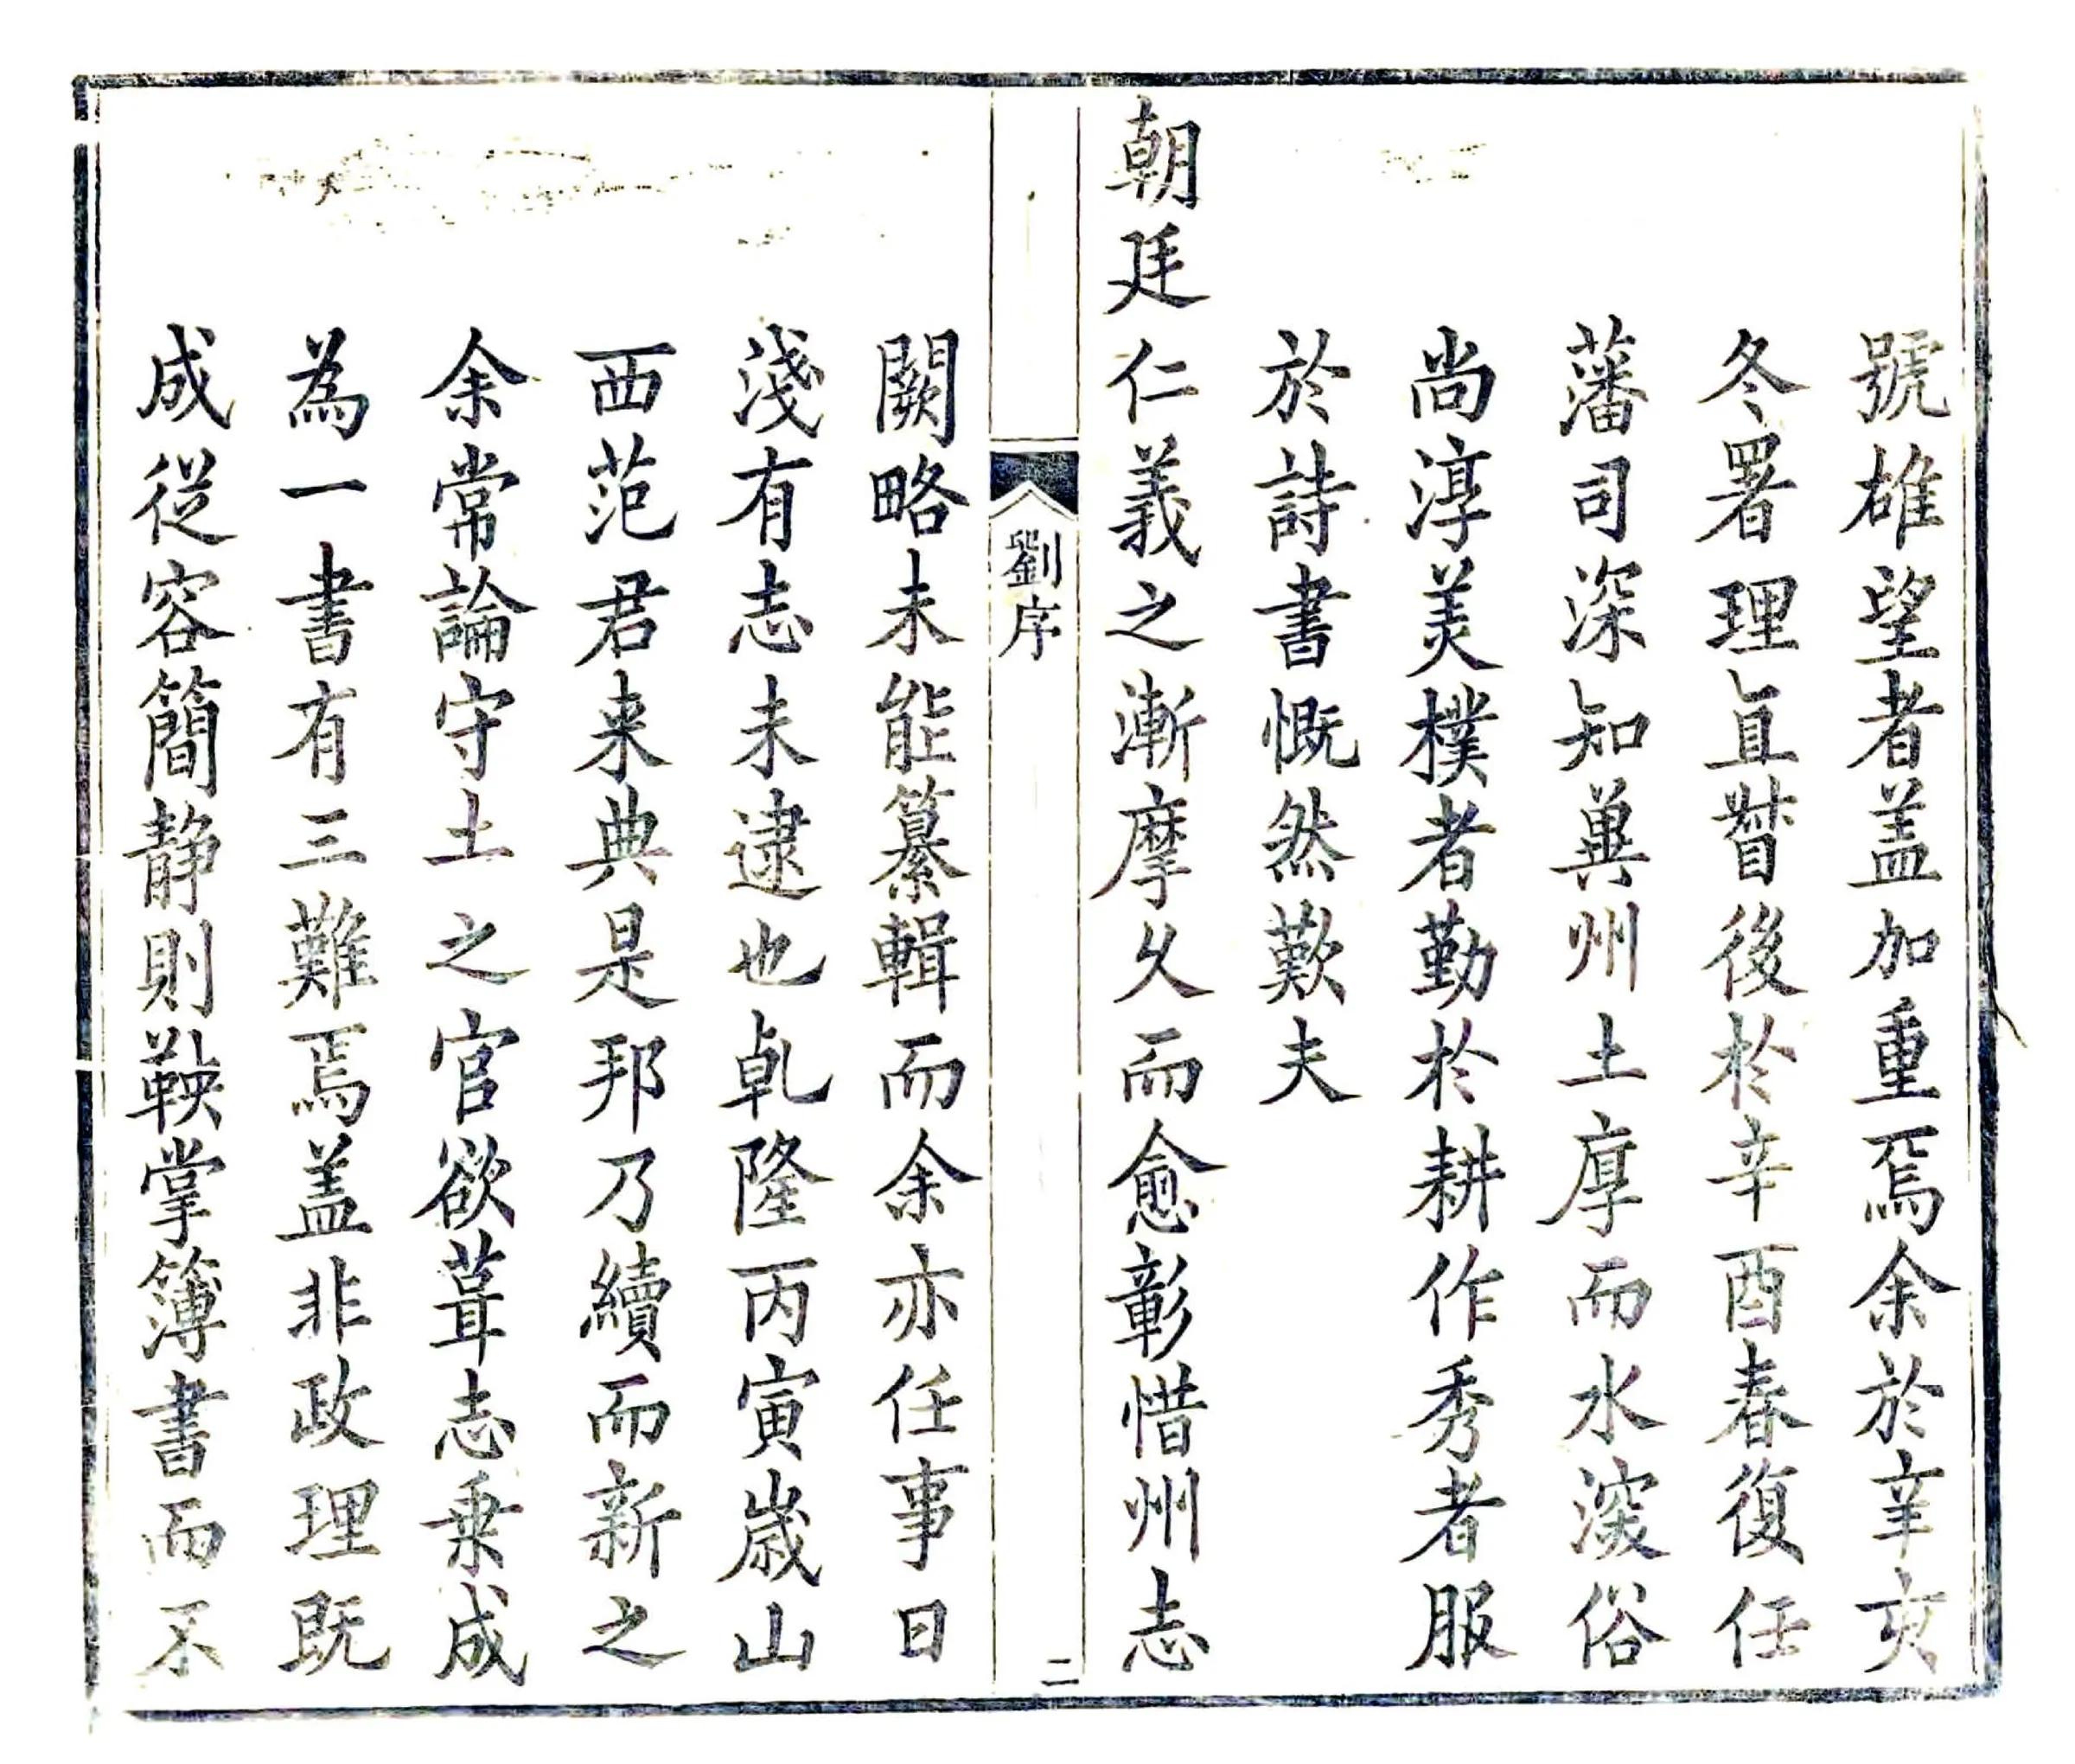 號雄望者盖加重焉余於辛亥
冬署理直督後於辛酉春復任
藩司深知冀州土厚而水深俗
尚淳美樸者勤於耕作秀者服
於詩書慨然歎夫
朝廷仁義之漸摩久而愈彰惜州志
劉序
二
闕略未能纂輯而余亦任事日
淺有志未逮也乾隆丙寅嵗山
西范君来典是邦乃續而新之
余常論守土之官欲葺志乗成
為一書有三難焉盖非政理既
成從容簡静則鞅掌簿書而不